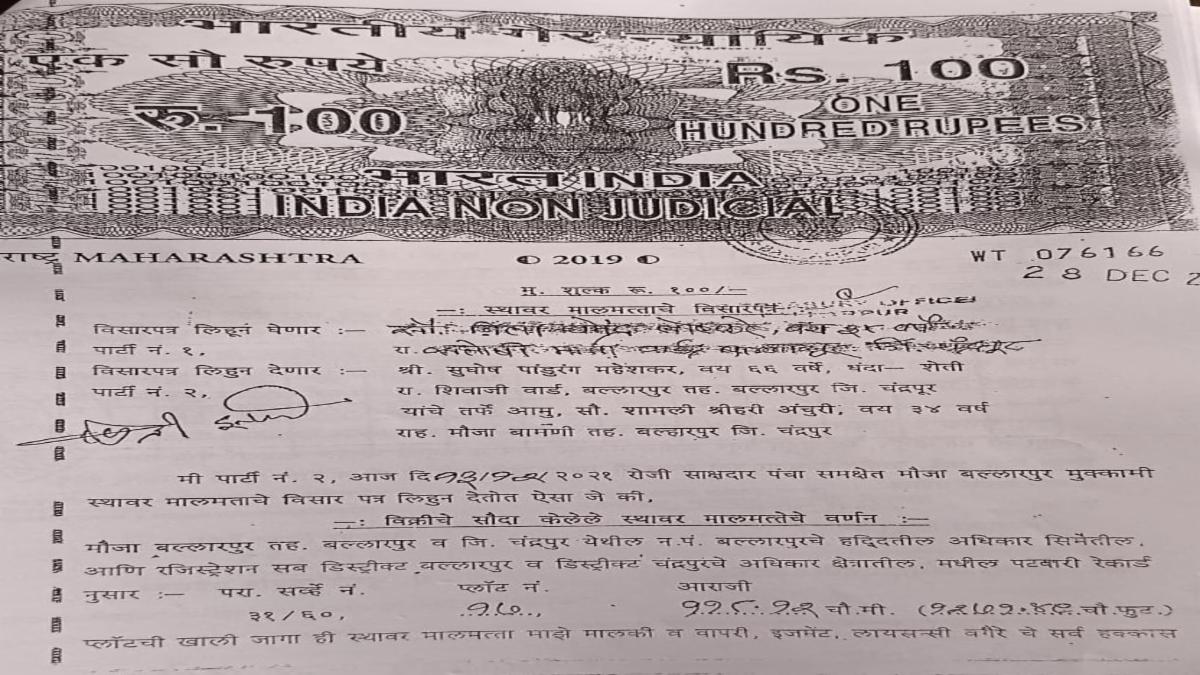 भारतीय गैर न्यायिक
एक सौ रुपये
Rs. 100
रु. 100
ONE
HUNDRED RUPEES
भारत INDIA
INDIA NON JUDICIAL
राष्ट्र MAHARASHTRA
2019
WT 076166
28 DEC 2
मु. शुल्क रू. १००/—
—: स्थावर मालमत्ताचे विसारपत्र
OFFICE
विसारपत्र लिहूनं घेणार :—
पार्टी नं. १, रा.
विसारपत्र लिहुन देणार :— श्री. सुघोष पांडुरंग महेशकर, वय ६६ वर्षे, धंदा— शेती
पार्टी नं. २, रा. शिवाजी वार्ड, बल्लारपुर तह. बल्लारपुर जि. चंद्रपूर
यांचे तर्फे आमु, सौ. शामली श्रीहरी अंचुरी, वय ३४ वर्ष
राह. मौजा बामणी तह. बल्हारपुर जि. चंद्रपुर
मी पार्टी नं. २, आज दि २०२१ रोजी साक्षदार पंचा समक्षेत मौजा बल्लारपुर मुक्कामी
स्थावर मालमताचे विसार पत्र लिहुन देतोत ऐसा जे की,
—: विक्रीचे सौदा केलेले स्थावर मालमत्तेचे वर्णन :—
मौजा बल्लारपुर तह. बल्लारपुर व जि. चंद्रपुर येथील न.पं. बल्लारपुरचे हद्दितील अधिकार सिमेतील,
आणि रजिस्ट्रेशन सब डिस्ट्रीक्ट बल्लारपुर व डिस्ट्रीक्ट चंद्रपुरचे अधिकार क्षेत्रातील, मधील पटवारी रेकार्ड
नुसार :— परा. सर्व्हे नं. प्लॉट नं. आराजी
३१/६०, १७, चौ.मी. ( चौ.फुट.)
प्लॉटची खाली जागा ही स्थावर मालमत्ता माझे मालकी व वापरी, इजमेंट, लायसन्सी वगैरे चे सर्व हक्कास